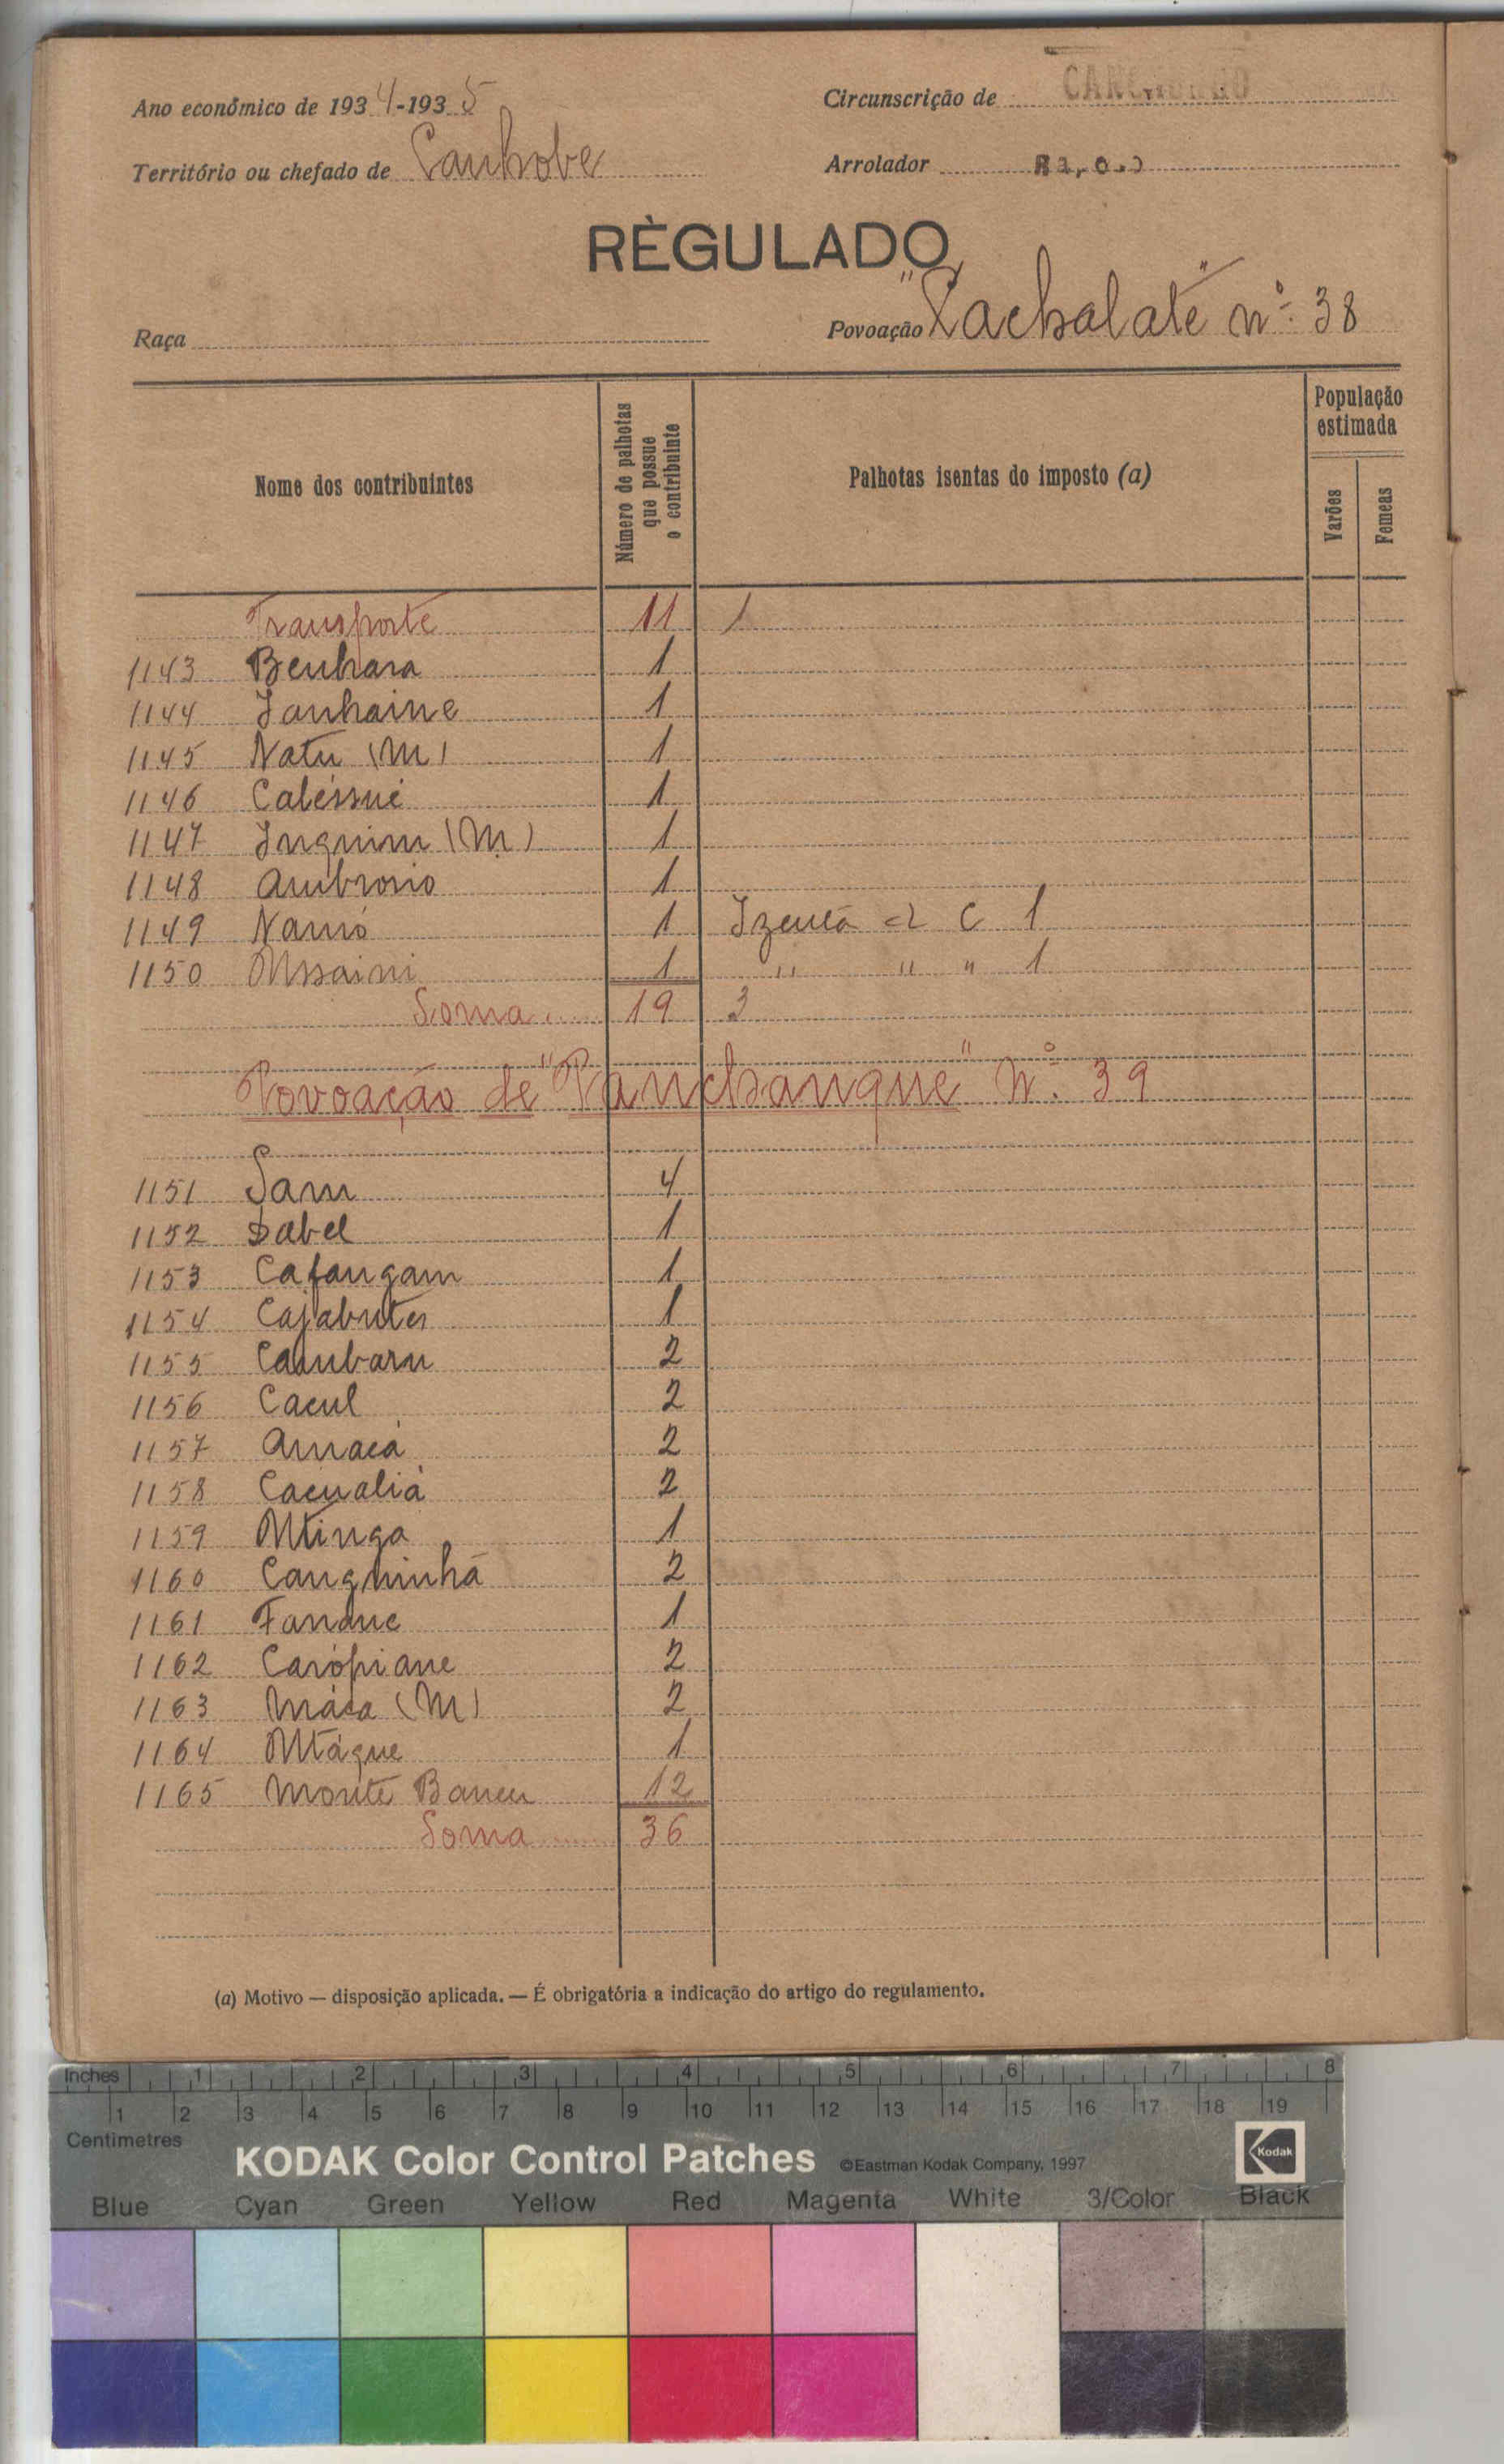 Ano económico de 1934-1935
Circunscrição de
Território ou chefado de Canhobe
Arrolador
RÈGULADO
Raça
Povoação "Pachalate" nº 38
Nome dos contribuintes
Número de palhotas que possue o contribuinte
Palhotas isentas do imposto (a)
População estimada
Varões
Femeas
Transporte 11 1
1143 Benhara 1
1144 Janhaine 1
1145 Natú (M) 1
1146 Caléssué 1
1147 Inquim (M) 1
1148 Ambrosio 1
1149 Namó 1 Izenta al C 1
1150 Ussaini 1 " " " 1
Soma ... 19 3
Povoação de "Panchanque" Nº 39
1151 Sam 4
1152 Dabel 1
1153 Cafangam 1
1154 Cajabutes 1
1155 Cambaru 2
1156 Cacul 2
1157 Amacá 2
1158 Cacualiá 2
1159 Utinga 1
1160 Canguinhá 2
1161 Fandue 1
1162 Carópiane 2
1163 Mása (M) 2
1164 Utáque 1
1165 Monte Bancu 12
Soma ... 36
(a) Motivo — disposição aplicada. — É obrigatória a indicação do artigo do regulamento.
Inches 1 2 3 4 5 6 7 8
1 2 3 4 5 6 7 8 9 10 11 12 13 14 15 16 17 18 19
Centimetres
KODAK Color Control Patches ©Eastman Kodak Company, 1997 Kodak
Blue Cyan Green Yellow Red Magenta White 3/Color Black